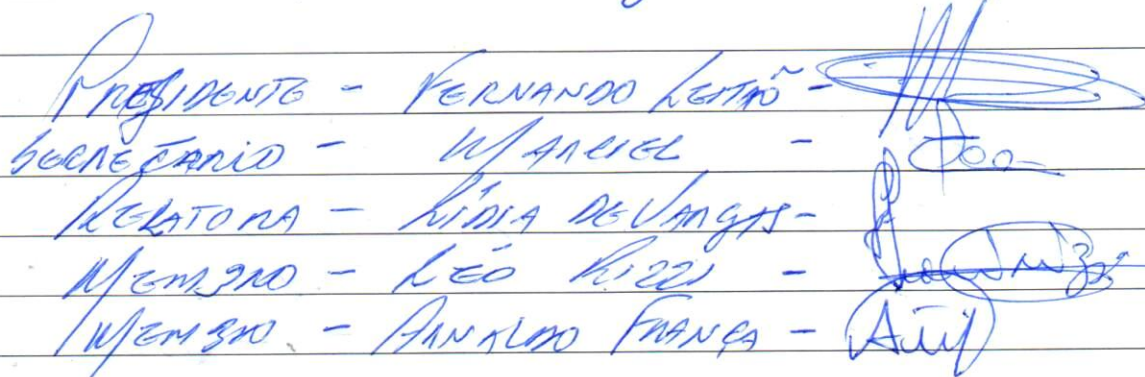 Presidente - Fernando Leitão -
Secretário - Marciel -
Relatora - Lídia de Vargas -
Membro - Léo Rizzi -
Membro - Arnaldo França -